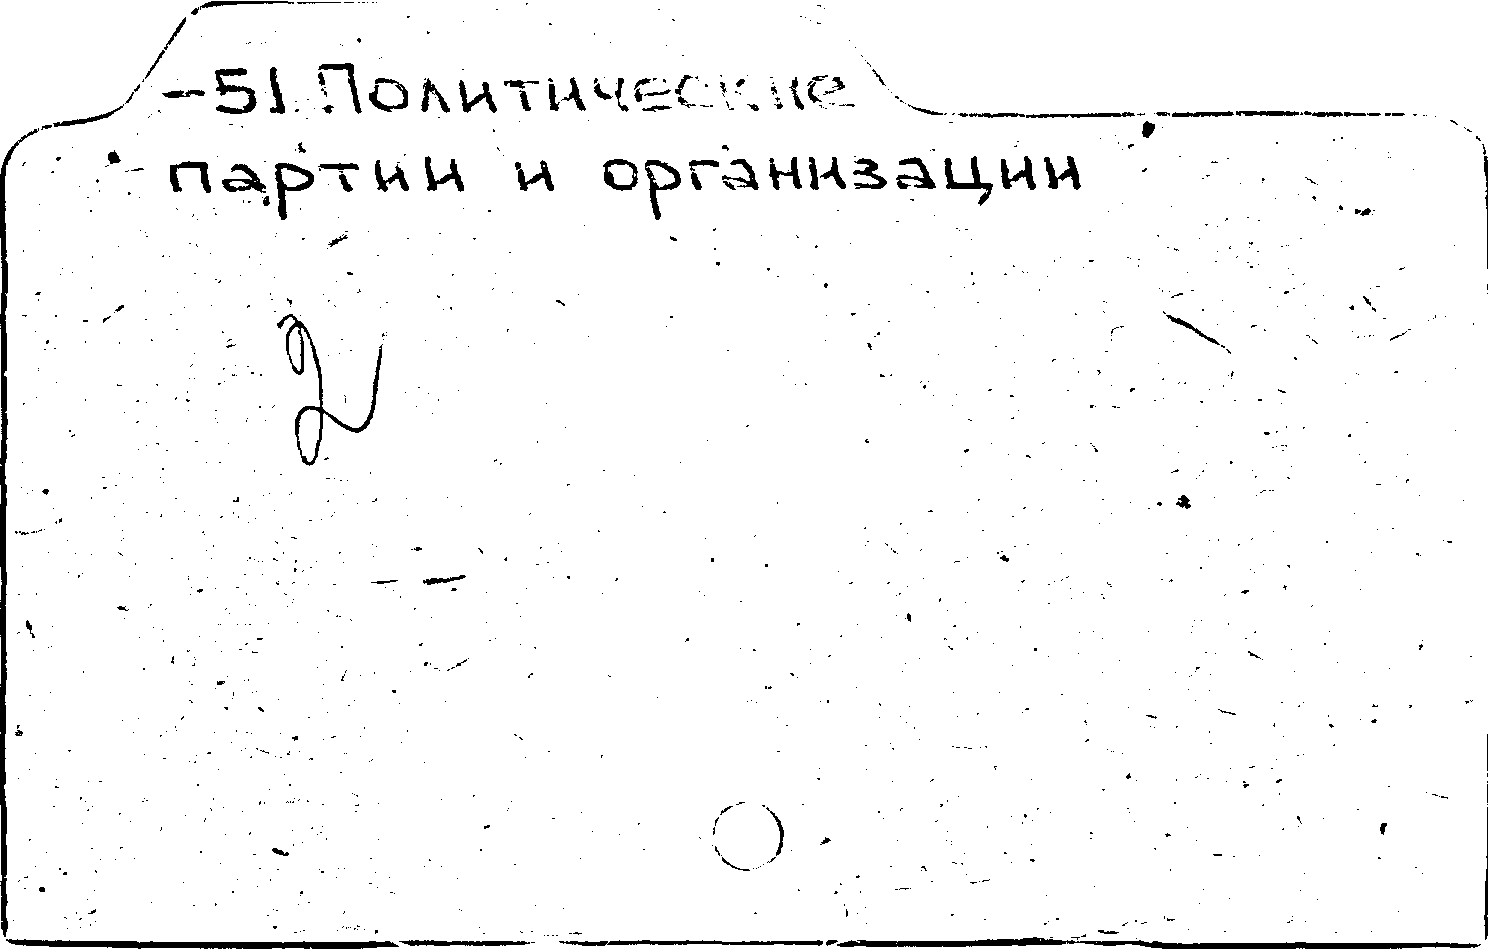 -51 Политические
партии и организации
2